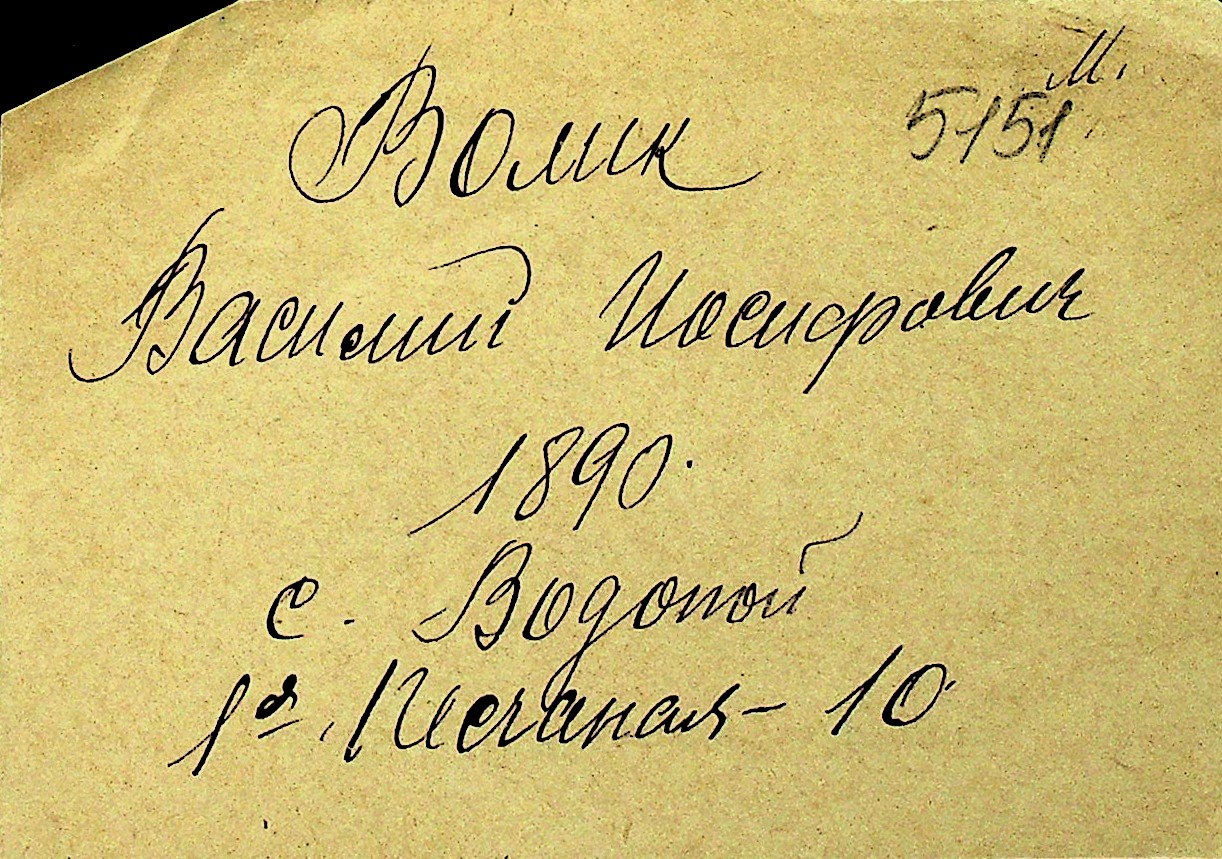 М.
5151
Волик
Василий Иосифович
1890.
с. Водопой
1я Песчаная - 10